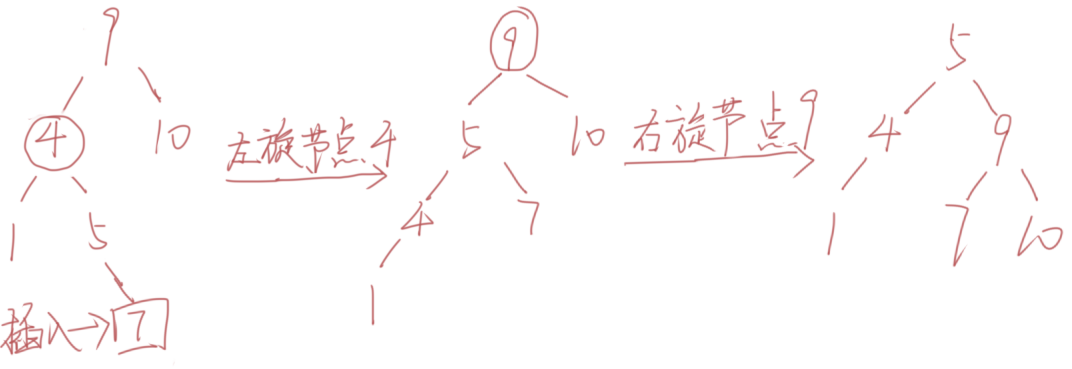 9
4 10
1 5
插入→7
左旋节点4
9
5 10
4 7
1
右旋节点9
5
4 9
1 7 10